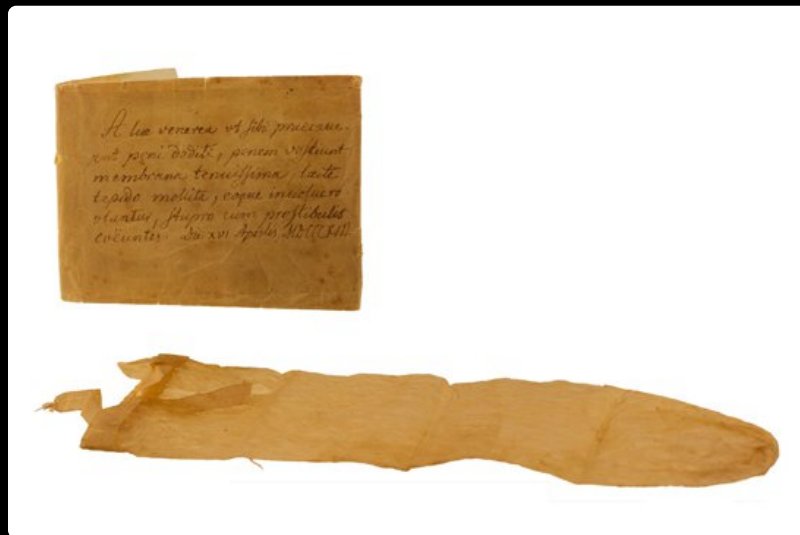 A lue venerea ut sibi praecave-
ant pgni dediti, penem vestiunt
membrana tenuissima, lacte
tepido mollita, eoque involucro
utuntur, stupro cum prostibulis
coëuntes. Die XVI Aprilis